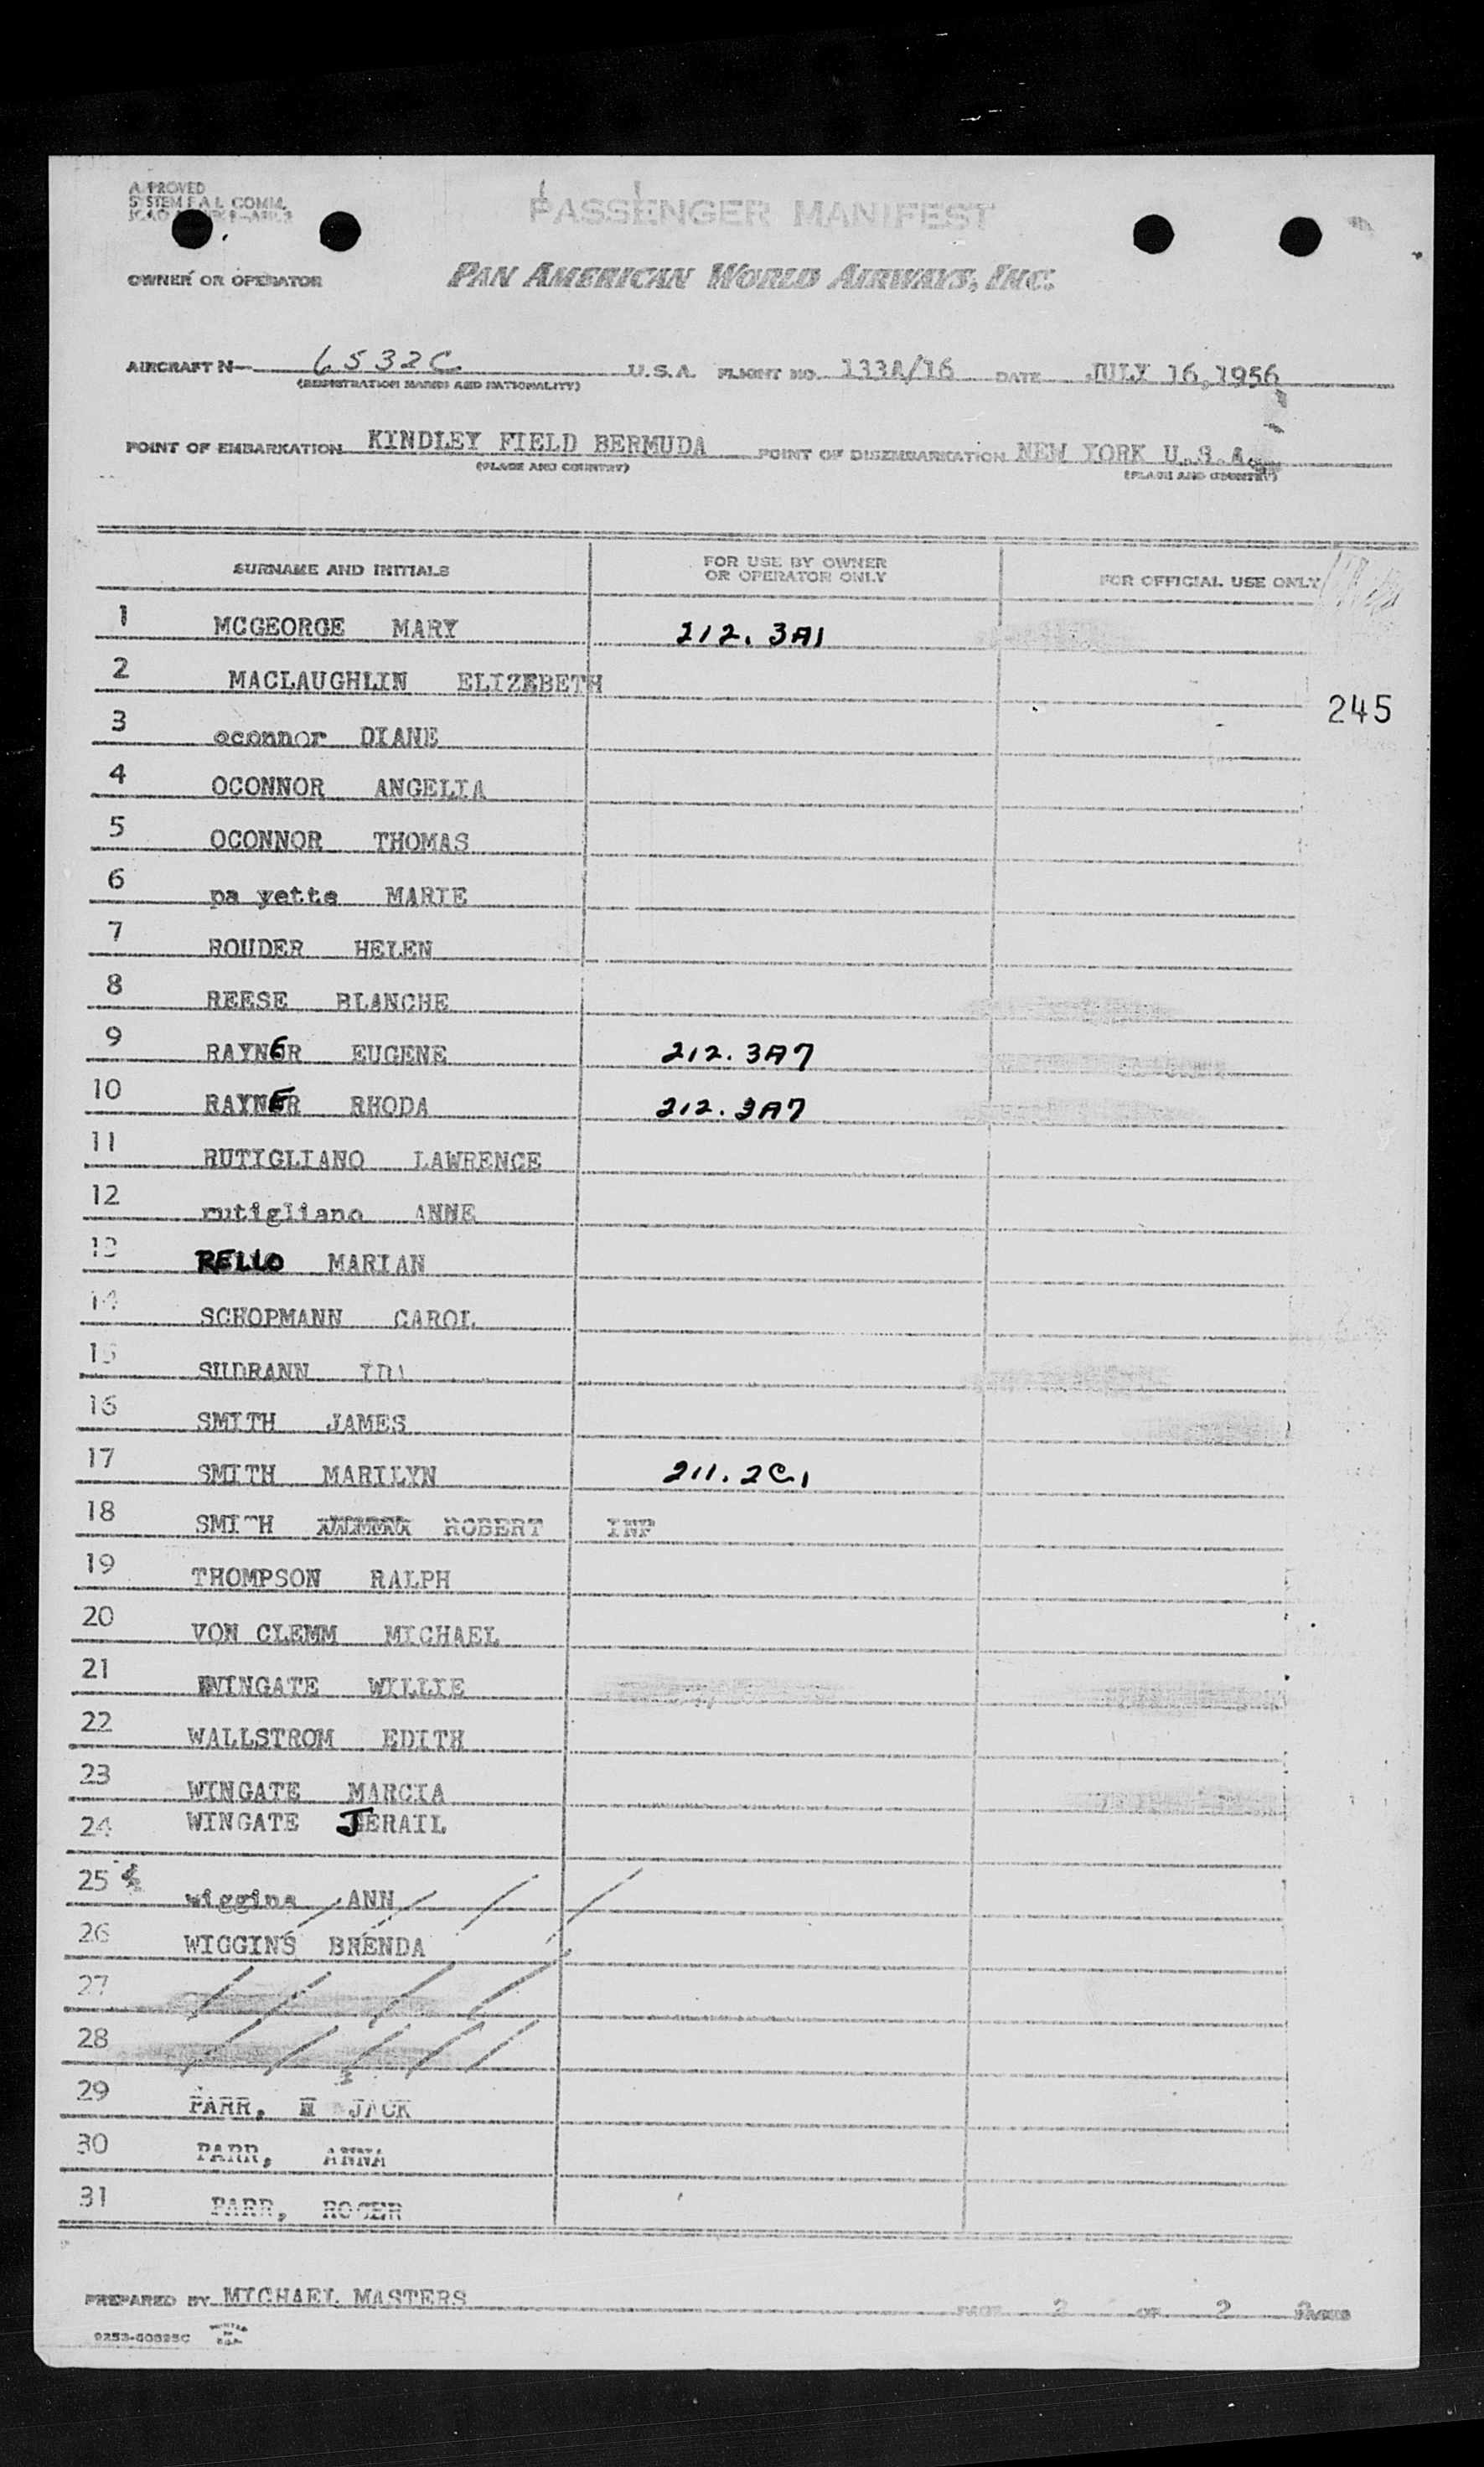 APPROVED
SYSTEM F.A.L. COMM.
PASSENGER MANIFEST
OWNER OR OPERATOR PAN AMERICAN WORLD AIRWAYS, INC.
AIRCRAFT N 6532C U.S.A. FLIGHT NO. 133A/16 DATE JULY 16, 1956
(REGISTRATION MARKS AND NATIONALITY)
POINT OF EMBARKATION KINDLEY FIELD BERMUDA POINT OF DISEMBARKATION NEW YORK U.S.A.
(PLACE AND COUNTRY) (PLACE AND COUNTRY)
SURNAME AND INITIALS FOR USE BY OWNER OR OPERATOR ONLY FOR OFFICIAL USE ONLY
1 MCGEORGE MARY 212. 3A1
2 MACLAUGHLIN ELIZEBETH
245
3 oconnor DIANE
4 OCONNOR ANGELIA
5 OCONNOR THOMAS
6 pa yette MARIE
7 ROUDER HELEN
8 REESE BLANCHE
9 RAYNER EUGENE 212. 3A7
10 RAYNER RHODA 212. 3A7
11 RUTIGLIANO LAWRENCE
12 rutigliano ANNE
13 RELLO MARIAN
14 SCHOPMANN CAROL
15 SUDRANN IDA
16 SMITH JAMES
17 SMITH MARILYN 211. 2C1
18 SMITH ROBERT INF
19 THOMPSON RALPH
20 VON CLEMM MICHAEL
21 WINGATE WILLIE
22 WALLSTROM EDITH
23 WINGATE MARCIA
24 WINGATE JERAIL
25 wiggins ANN
26 WIGGINS BRENDA
27
28
29 PARR, JACK
30 PARR, ANNA
31 PARR, ROGER
PREPARED BY MICHAEL MASTERS PAGE 2 OF 2 PAGES
9253-60895C PRINTED IN U.S.A.